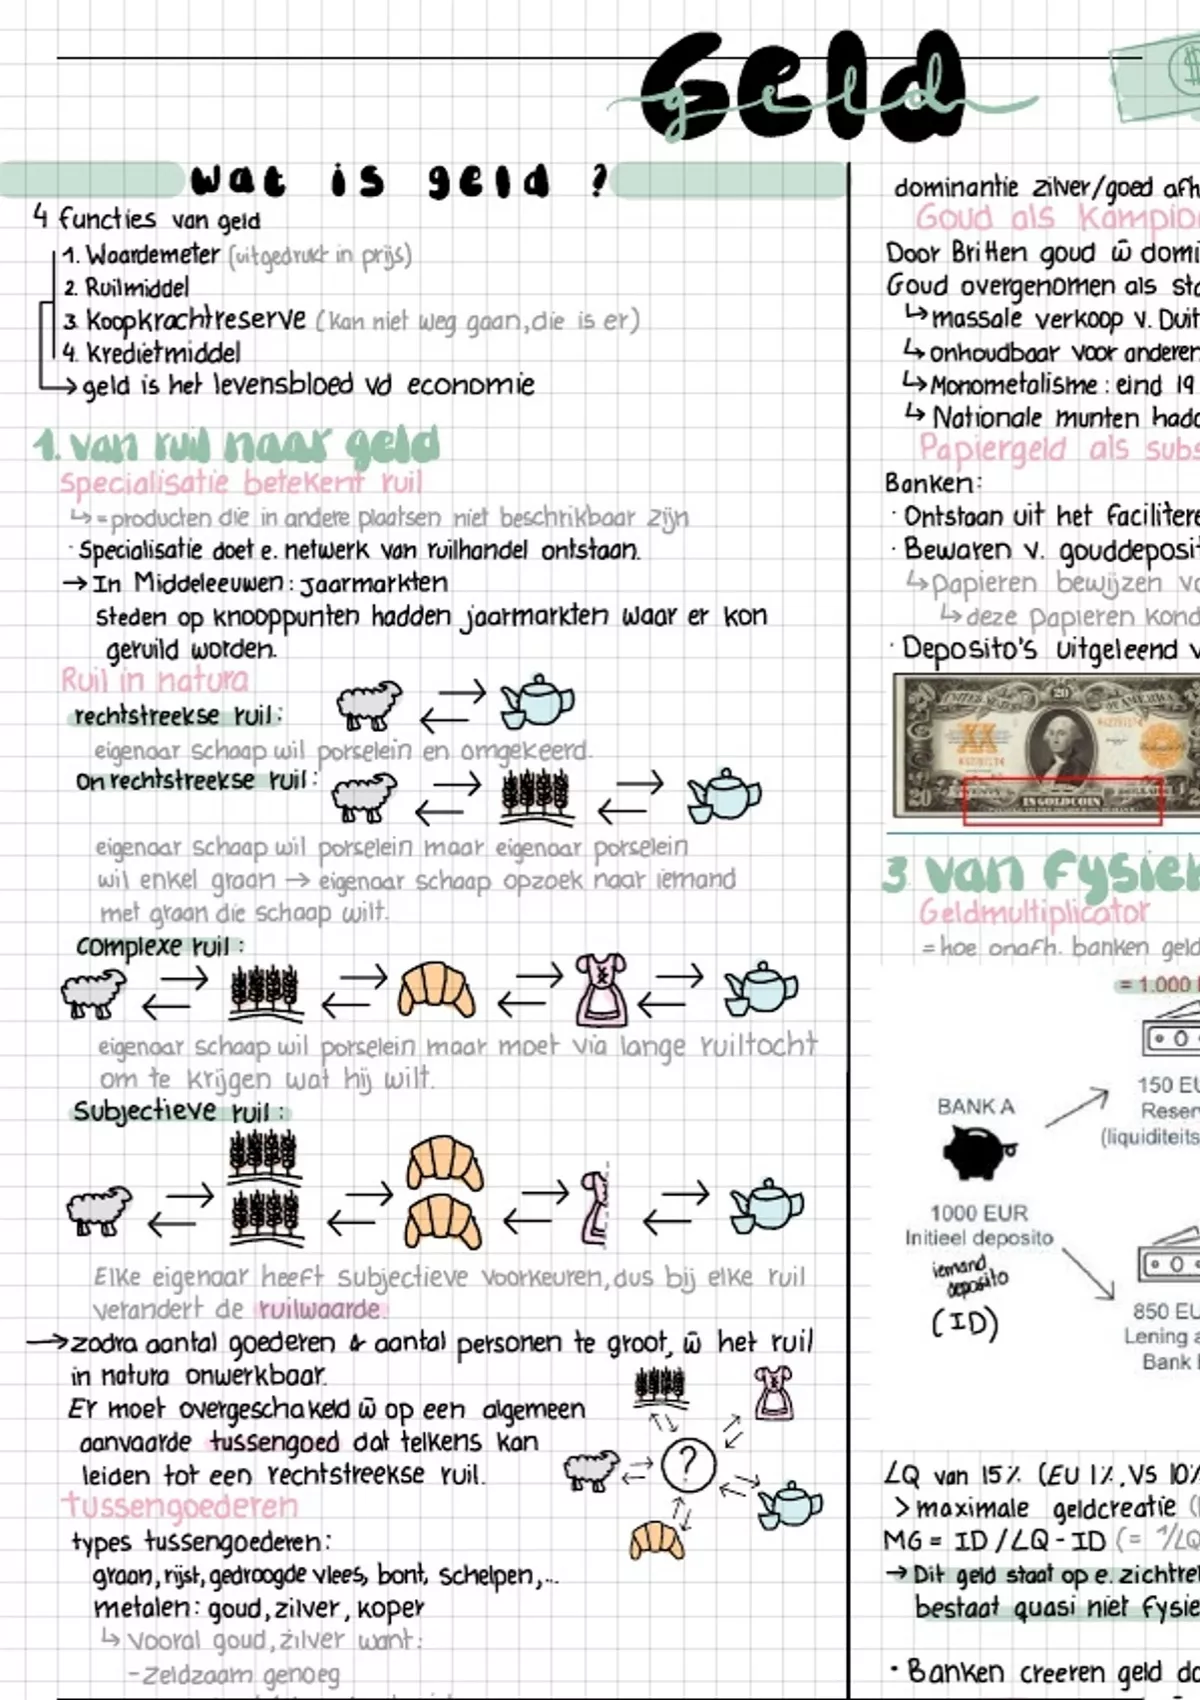 Geld
geld
wat is geld ?
4 functies van geld
1. Waardemeter (uitgedrukt in prijs)
2. Ruilmiddel
3. Koopkrachtreserve (kan niet weg gaan, die is er)
4. Kredietmiddel
↳ geld is het levensbloed vd economie
1. van ruil naar geld
Specialisatie betekent ruil
↳ = producten die in andere plaatsen niet beschrikbaar zijn
· Specialisatie doet e. netwerk van ruilhandel ontstaan.
→ In Middeleeuwen: jaarmarkten
steden op knooppunten hadden jaarmarkten waar er kon
geruild worden.
Ruil in natura
rechtstreekse ruil:
eigenaar schaap wil porselein en omgekeerd.
onrechtstreekse ruil:
eigenaar schaap wil porselein maar eigenaar porselein
wil enkel graan → eigenaar schaap opzoek naar iemand
met graan die schaap wilt.
complexe ruil:
eigenaar schaap wil porselein maar moet via lange ruiltocht
om te krijgen wat hij wilt.
Subjectieve ruil:
Elke eigenaar heeft subjectieve voorkeuren, dus bij elke ruil
verandert de ruilwaarde.
→ zodra aantal goederen & aantal personen te groot, w̄ het ruil
in natura onwerkbaar.
Er moet overgeschakeld w̄ op een algemeen
aanvaarde tussengoed dat telkens kan
leiden tot een rechtstreekse ruil.
?
tussengoederen
types tussengoederen:
graan, rijst, gedroogde vlees, bont, schelpen,...
metalen: goud, zilver, koper
↳ vooral goud, zilver want:
- Zeldzaam genoeg
dominantie zilver/goed afh
Goud als kampio
Door Britten goud w̄ domi
Goud overgenomen als sta
↳ massale verkoop v. Duit
↳ onhoudbaar voor anderen
↳ Monometalisme: eind 19
↳ Nationale munten hadd
Papiergeld als subs
Banken:
· Ontstaan uit het facilitere
· Bewaren v. gouddeposit
↳ papieren bewijzen va
↳ deze papieren kond
· Deposito's uitgeleend v
20
XX
20
IN GOLD COIN
3 van fysiek
Geldmultiplicator
= hoe onafh. banken geld
= 1.000
150 EU
Reser
(liquiditeits
BANK A
1000 EUR
Initieel deposito
iemand
deposito
(ID)
850 EU
Lening a
Bank
LQ van 15% (EU 1%, VS 10%
> maximale geldcreatie (
MG = ID / LQ - ID (= 1/LQ
→ Dit geld staat op e. zichtre
bestaat quasi niet fysie
· Banken creeren geld do